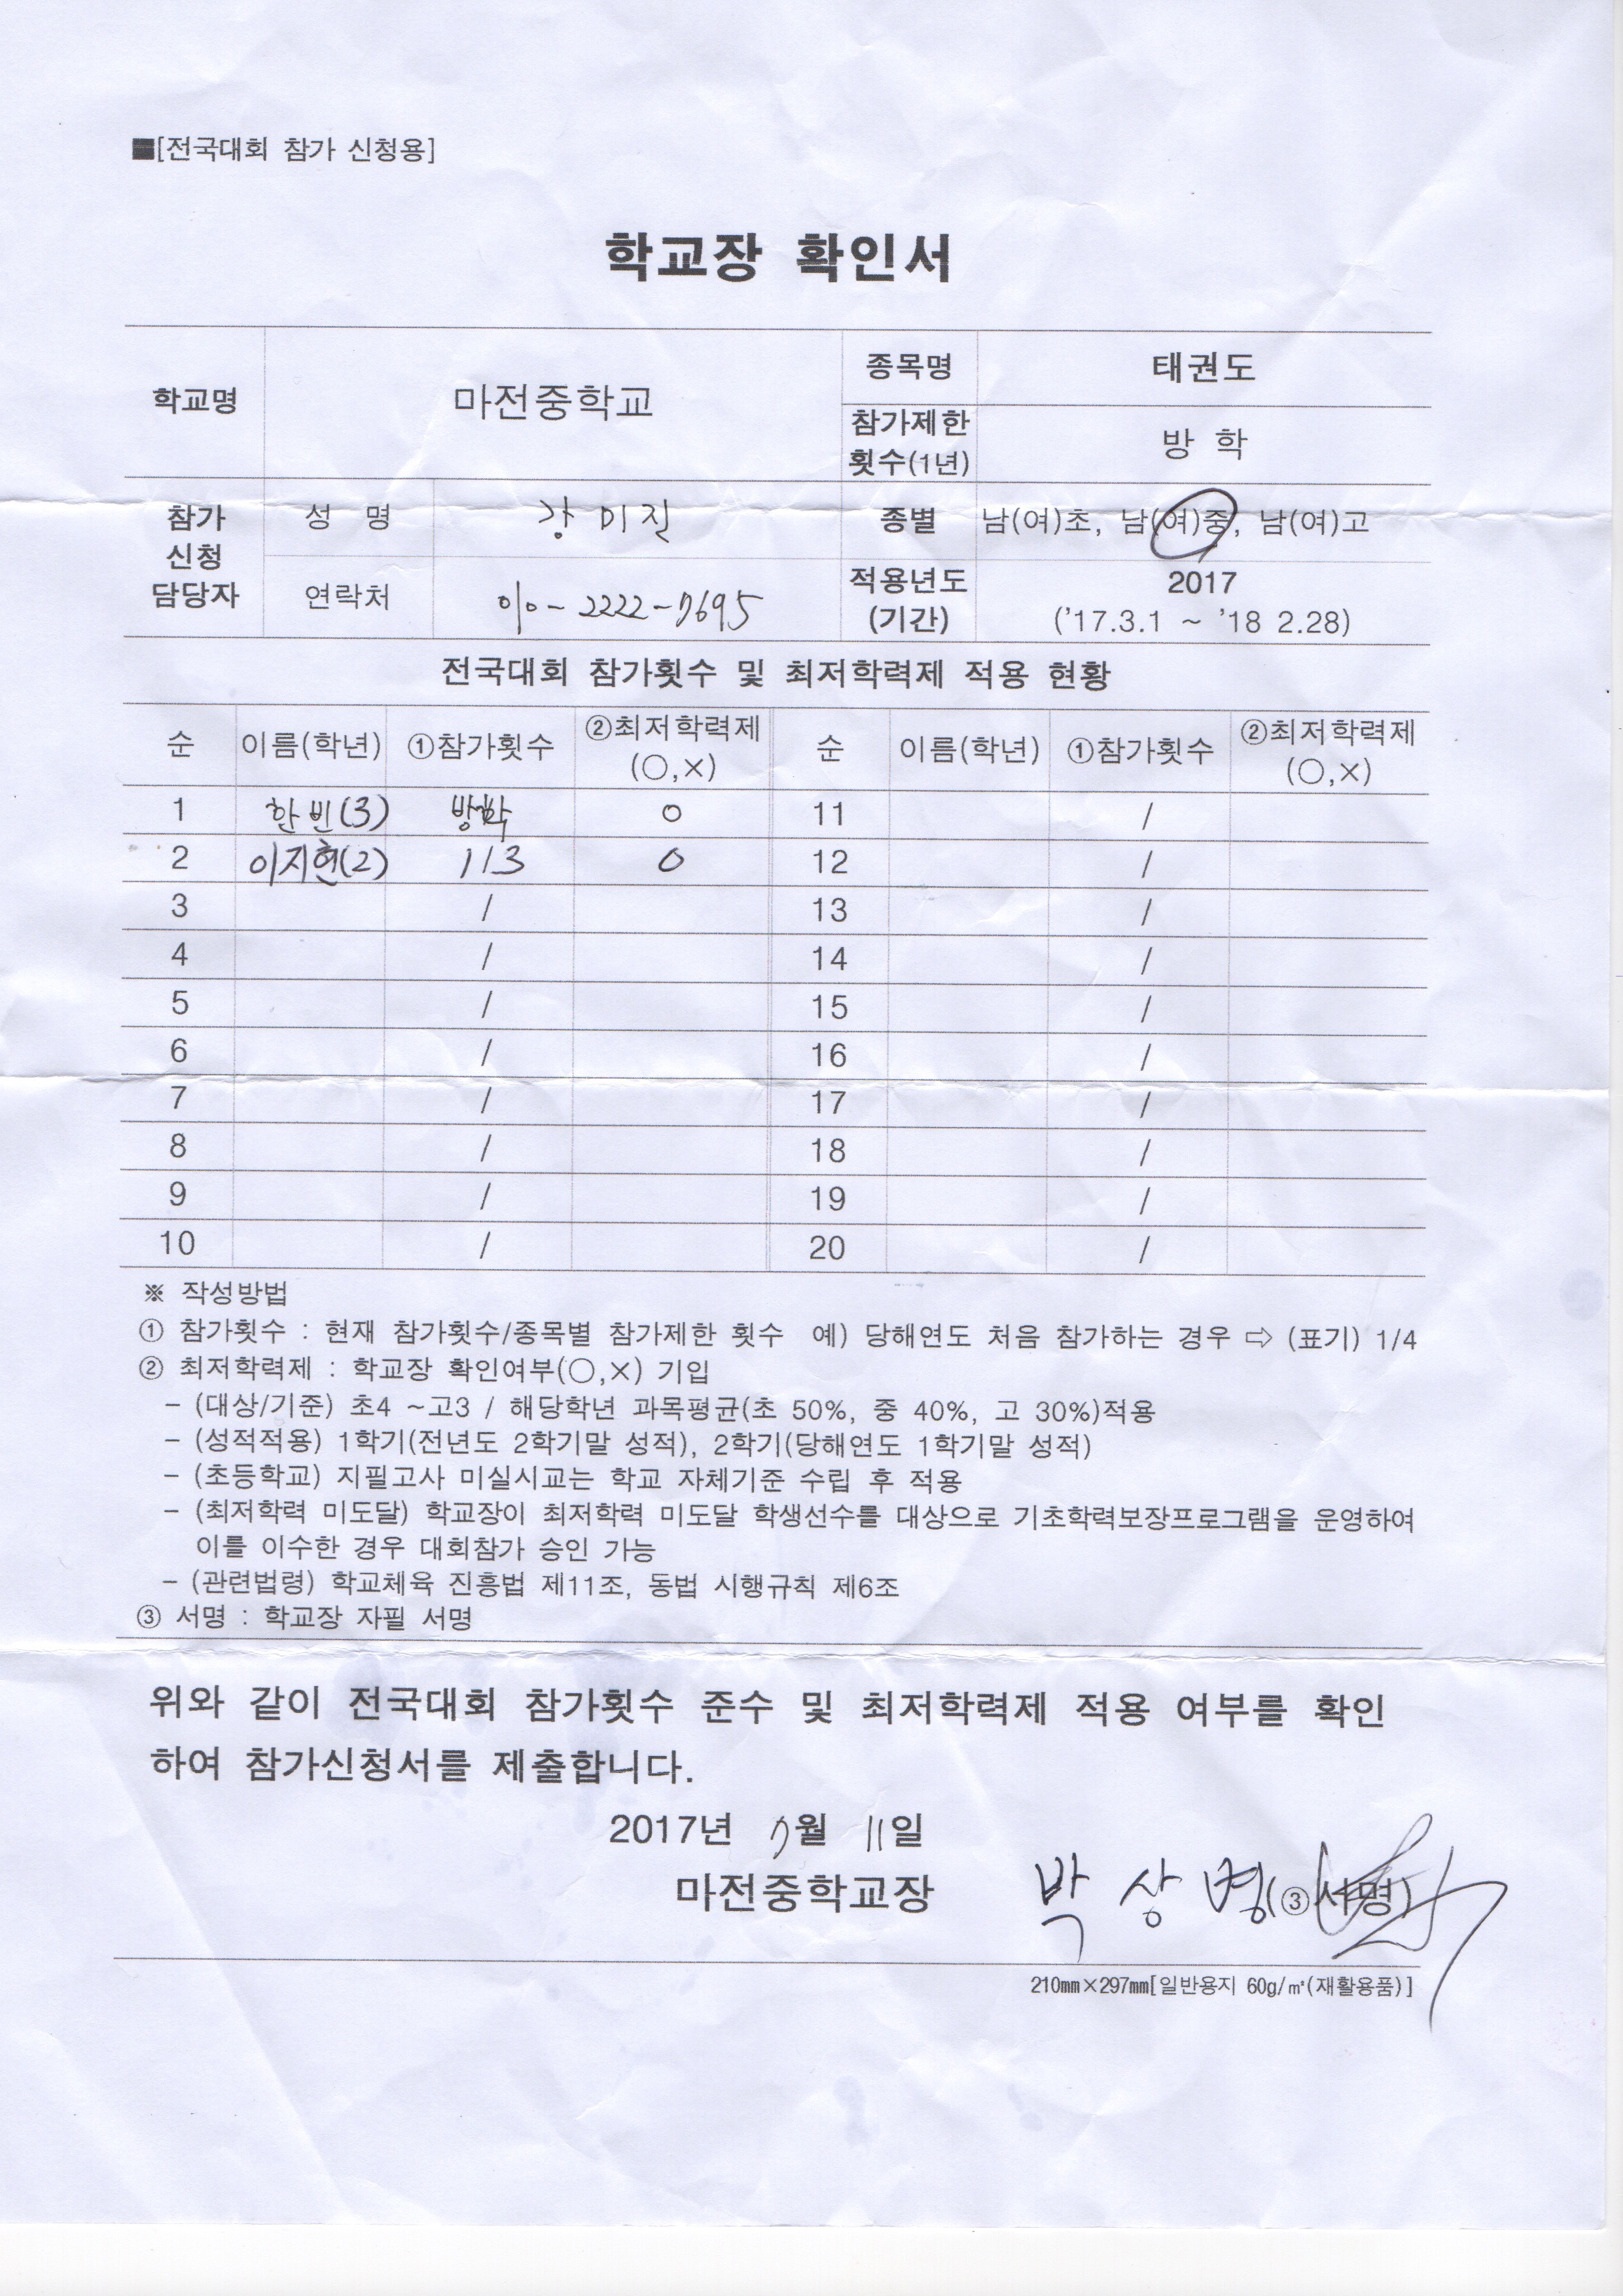 ■[전국대회 참가 신청용]
학교장 확인서
학교명 마전중학교 종목명 태권도
참가제한 횟수(1년) 방 학
참가 신청 담당자 성 명 강미진 종별 남(여)초, 남(여)중, 남(여)고
연락처 010-2222-7695 적용년도 (기간) 2017 ('17.3.1 ~ '18 2.28)
전국대회 참가횟수 및 최저학력제 적용 현황
순 이름(학년) ①참가횟수 ②최저학력제 (○,×) 순 이름(학년) ①참가횟수 ②최저학력제 (○,×)
1 한빈(3) 방학 ○ 11 /
2 이지현(2) 1/3 ○ 12 /
3 / 13 /
4 / 14 /
5 / 15 /
6 / 16 /
7 / 17 /
8 / 18 /
9 / 19 /
10 / 20 /
※ 작성방법
① 참가횟수 : 현재 참가횟수/종목별 참가제한 횟수 예) 당해연도 처음 참가하는 경우 ⇨ (표기) 1/4
② 최저학력제 : 학교장 확인여부(○,×) 기입
- (대상/기준) 초4 ~고3 / 해당학년 과목평균(초 50%, 중 40%, 고 30%)적용
- (성적적용) 1학기(전년도 2학기말 성적), 2학기(당해연도 1학기말 성적)
- (초등학교) 지필고사 미실시교는 학교 자체기준 수립 후 적용
- (최저학력 미도달) 학교장이 최저학력 미도달 학생선수를 대상으로 기초학력보장프로그램을 운영하여
이를 이수한 경우 대회참가 승인 가능
- (관련법령) 학교체육 진흥법 제11조, 동법 시행규칙 제6조
③ 서명 : 학교장 자필 서명
위와 같이 전국대회 참가횟수 준수 및 최저학력제 적용 여부를 확인
하여 참가신청서를 제출합니다.
2017년 7월 11일
마전중학교장 박상병(③ 서명)
210㎜×297㎜[일반용지 60g/㎡(재활용품)]